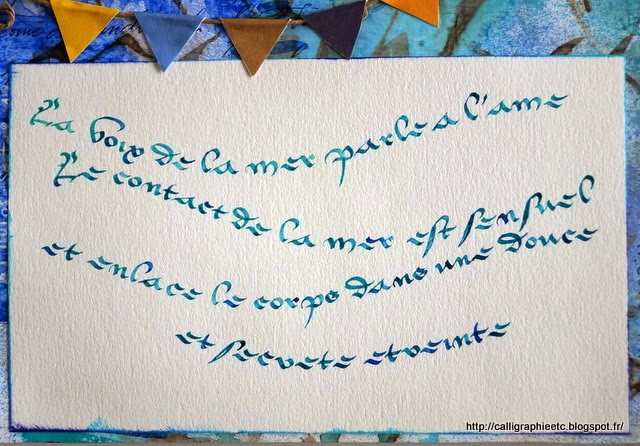 La voix de la mer parle a l'ame
Le contact de la mer est sensuel
et enlace le corps dans une douce
et secrete etreinte
http://calligraphieetc.blogspot.fr/